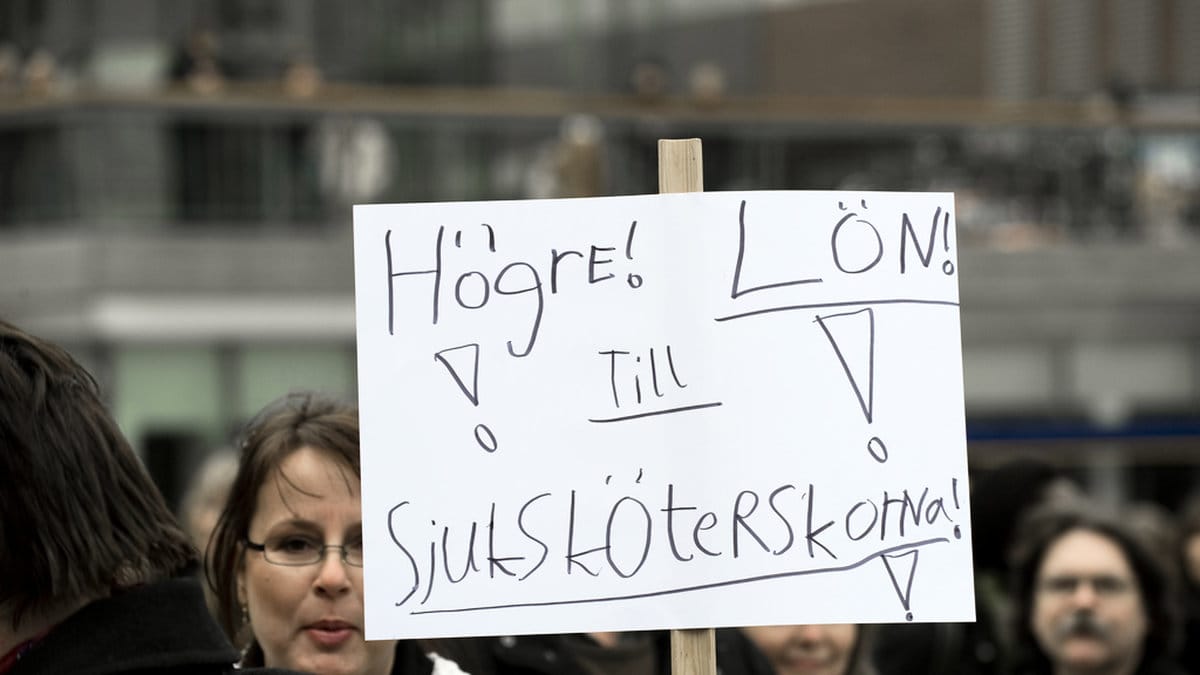 HögrE! LÖN!
! Till !
SjukSkÖteRSkorNa!
!